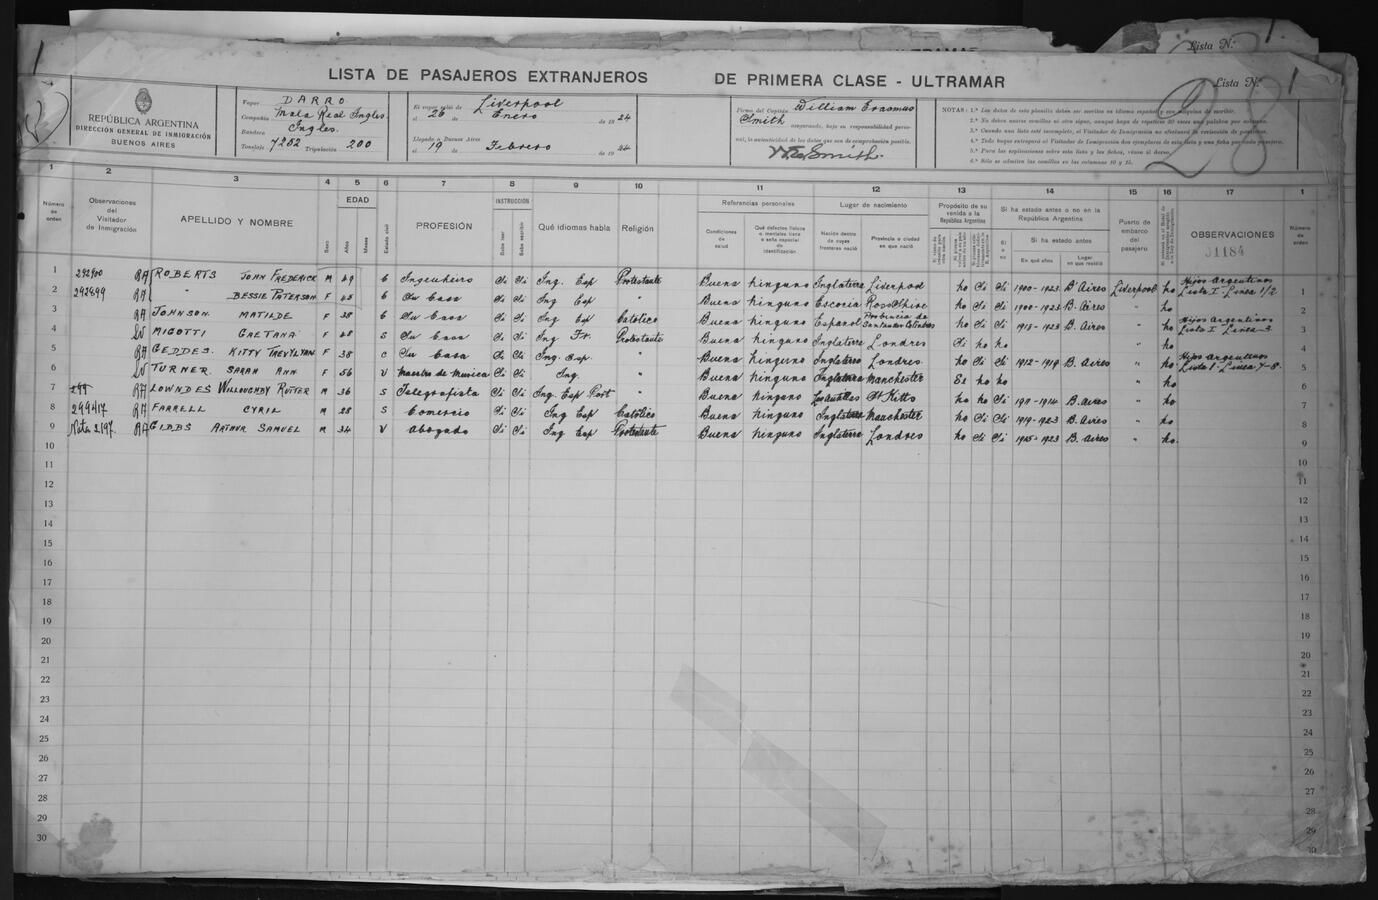 Lista N.º 1
LISTA DE PASAJEROS EXTRANJEROS DE PRIMERA CLASE - ULTRAMAR
Lista N.º 1
28
REPÚBLICA ARGENTINA
DIRECCIÓN GENERAL DE INMIGRACIÓN
BUENOS AIRES
Vapor DARRO
Compañía Mala Real Inglesa
Bandera Inglesa.
Tonelaje 7252 Tripulación 200
El vapor salió de Liverpool
el 26 de Enero de 1924
Llegado a Buenos Aires
el 19 de Febrero de 1924
Firma del Capitán William Erasmus
Smith asegurando, bajo su responsabilidad perso-
nal, la autenticidad de los datos que son de comprobación posible.
Smith.
NOTAS: 1.ª Los datos de esta planilla deben ser escritos en idioma español y con máquina de escribir.
2.ª No deben usarse comillas ni otro signo, aunque haya de repetirse 20 veces una palabra por columna.
3.ª Cuando una lista esté incompleta, el Visitador de Inmigración no efectuará la revisión de pasajeros.
4.ª Todo buque entregará al Visitador de Inmigración dos ejemplares de esta lista y una ficha por cada pasajero.
5.ª Para las explicaciones sobre esta lista y las fichas, véase al dorso.
6.ª Sólo se admiten las comillas en las columnas 10 y 15.
1 2 3 4 5 6 7 8 9 10 11 12 13 14 15 16 17 1
Número de orden
Observaciones del Visitador de Inmigración
APELLIDO Y NOMBRE
Sexo
EDAD
Años
Meses
Estado civil
PROFESIÓN
INSTRUCCIÓN
Sabe leer
Sabe escribir
Qué idiomas habla
Religión
Referencias personales
Condiciones de salud
Qué defectos físicos o mentales tiene o seña especial de identificación
Lugar de nacimiento
Nación dentro de cuyas fronteras nació
Provincia o ciudad en que nació
Propósito de su venida a la República Argentina
Si ha estado antes o no en la República Argentina
Si o no
Si ha estado antes
En qué años
Lugar en que residió
Puerto de embarco del pasajero
OBSERVACIONES
31184
Número de orden
1 292900 RA ROBERTS JOHN FREDERICK M 49 C Ingeniero Si Si Ing. Esp Protestante Buena Ninguno Inglaterra Liverpool No Si Si 1900-1923 B. Aires Liverpool No Hijos Argentinos Lista I - Linea 1/2 1
2 292899 RA " BESSIE PATERSON F 45 C Su Casa Si Si Ing Esp " Buena Ninguno Escocia Ross Shire No Si Si 1900-1923 B. Aires " No 2
3 RA JOHNSON MATILDE F 38 C Su Casa Si Si Ing Esp Católico Buena Ninguno Español Provincia de Santander No Si Si 1913-1923 B. Aires " No Hijos Argentinos Lista I Linea-3. 3
4 MIGOTTI GAETANA F 48 S Su Casa Si Si Ing Fr. Protestante Buena Ninguno Inglaterra Londres Si No No " No 4
5 RA GEDDES. KITTY TREVYLYAN F 38 C Su Casa Si Si Ing. Esp. " Buena Ninguno Inglaterra Londres. No Si Si 1912-1919 B. Aires " No Hijos Argentinos Lista 1- Linea-7-8. 5
6 TURNER SARAH ANN F 56 V Maestro de Musica Si Si Ing. " Buena Ninguno Inglaterra Manchester Si No No " No 6
7 299 RA LOWNDES WILLOUGHBY RUTTER M 36 S Telegrafista Si Si Ing. Esp Port " Buena Ninguno Las Antillas St Kitts No No Si 1911-1914 B. Aires " No 7
8 299417 RA FARRELL CYRIL M 28 S Comercio Si Si Ing Esp Católico Buena Ninguno Inglaterra Manchester No Si Si 1919-1923 B. Aires " No 8
9 Nota 2197. RA GIBBS ARTHUR SAMUEL M 34 V Abogado Si Si Ing Esp Protestante Buena Ninguno Inglaterra Londres No Si Si 1915-1923 B. Aires " No. 9
10 10
11 11
12 12
13 13
14 14
15 15
16 16
17 17
18 18
19 19
20 20
21 21
22 22
23 23
24 24
25 25
26 26
27 27
28 28
29 29
30 30